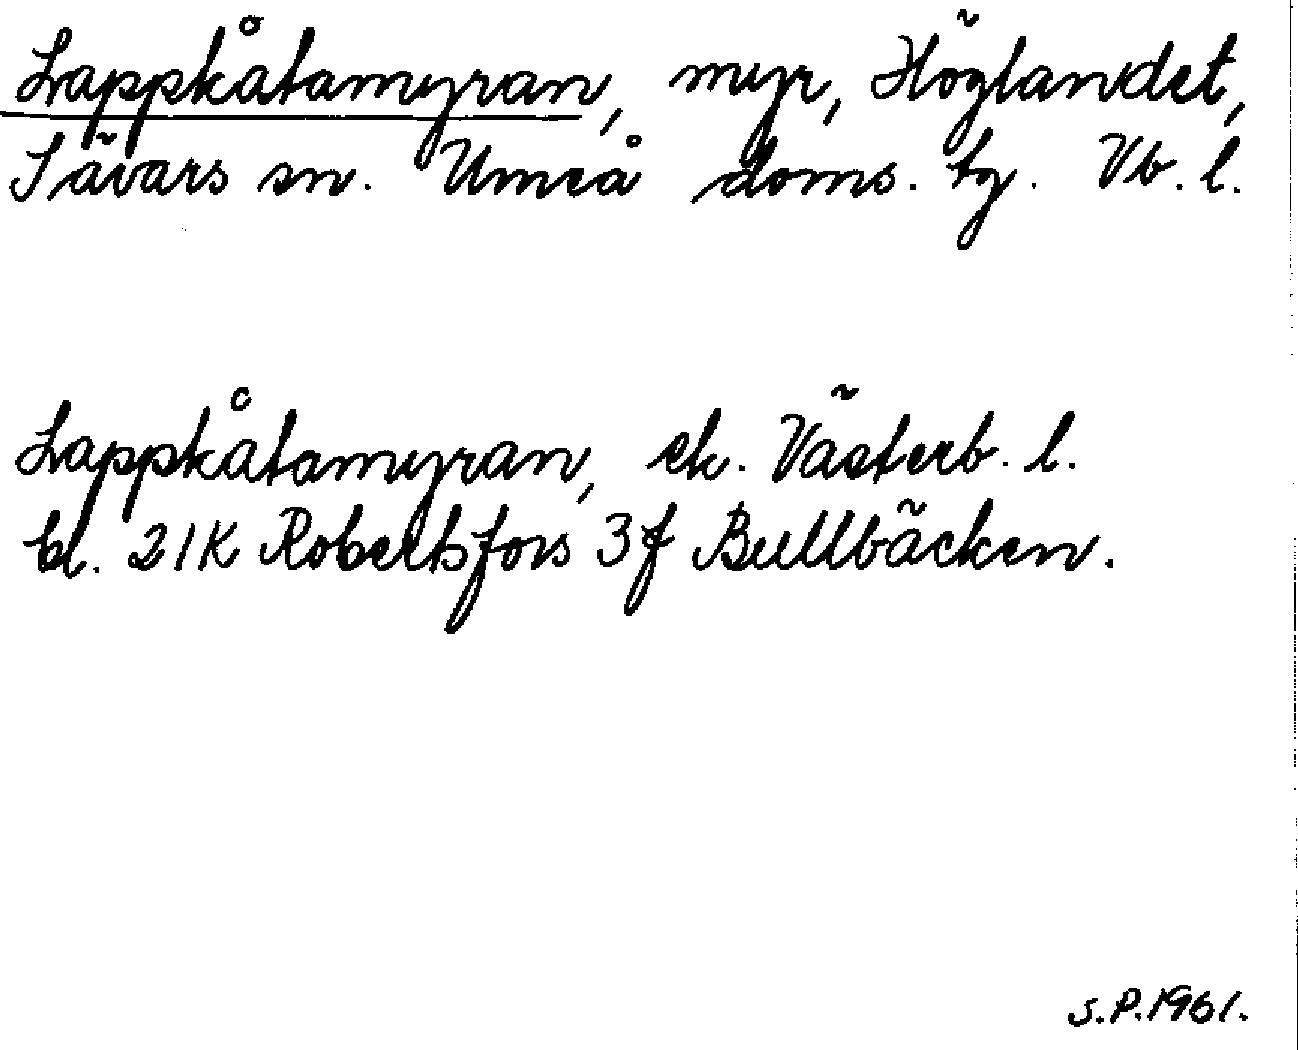 Lappkåtamyran, myr, Höglandet,
Sävars sn. Umeå doms. tg. Vb. l.
Lappkåtamyran, ek. Västerb. l.
bl. 21K Robertsfors 3f Bullbäcken.
S.P.1961.